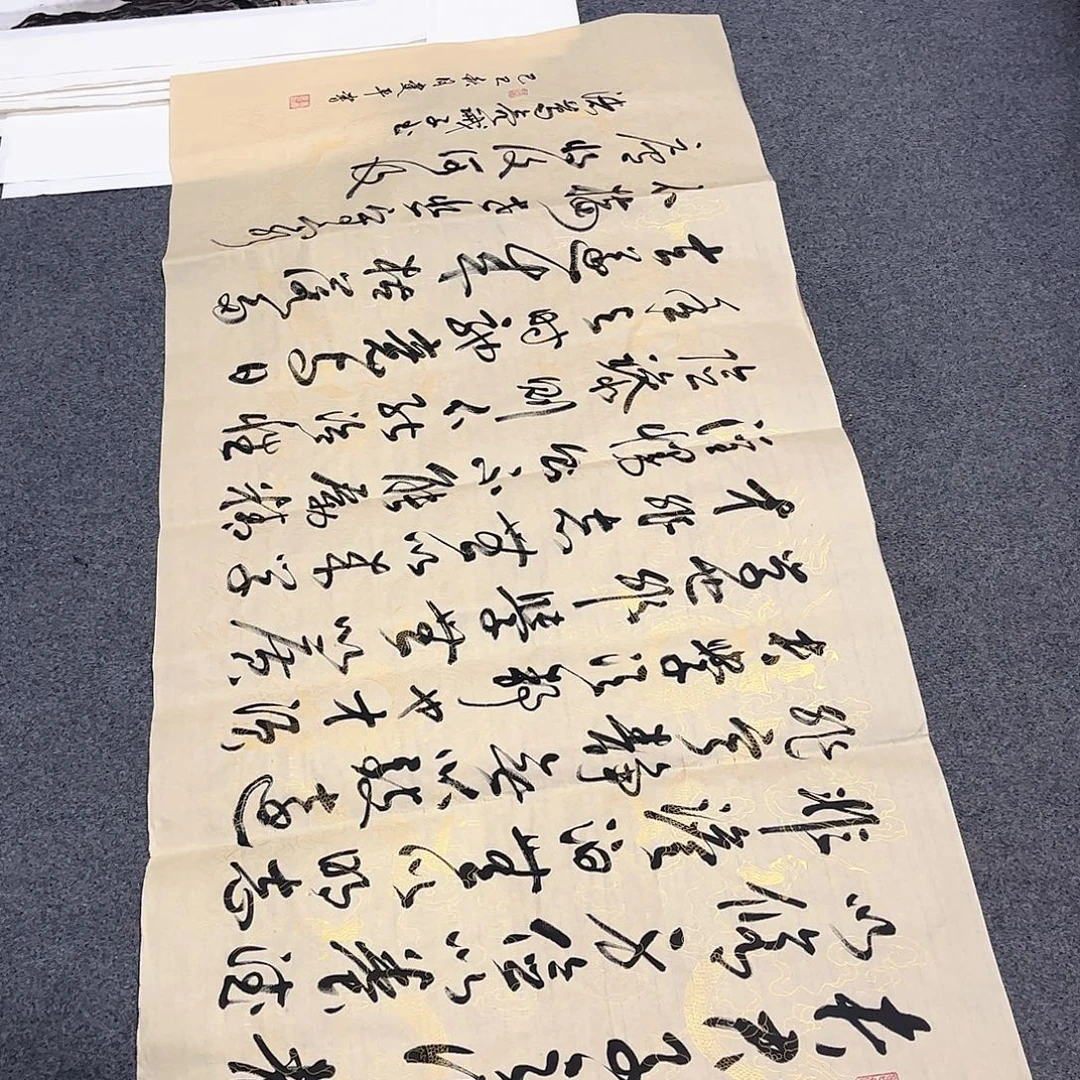 夫君子之行静
以修身俭以养德
非澹泊无以明志
非宁静无以致远
夫学须静也才须
学也非学无以广
才非志无以成学
淫慢则不能励精
险躁则不能治性
年与时驰意与日
去遂成枯落多
不接世悲守穷
庐将复何及
诸葛亮诫子书
乙巳秋月 书